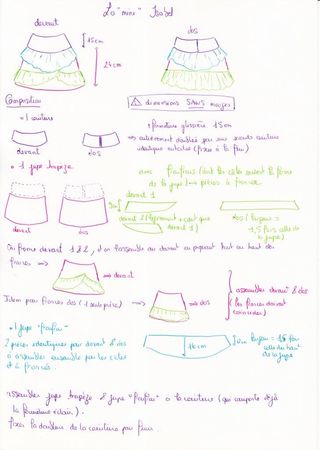 La "mini" Isabel
devant
dos
15cm
24cm
Composition
⚠ dimensions SANS marges
• 1 ceinture
devant
dos
fermeture glissière 15cm
→ entièrement doublée par une seconde ceinture
identique
• 1 jupe trapèze
avec "froufrous" dont les côtés suivent la forme
de la jupe
devant
dos
devant 1
devant 2
devant 1
dos
1,5 fois celle de
la jupe
On fronce devant 1 & 2, et on l'assemble au devant en piquant haut ou bas de
fronces
⇒ devant
⇒ devant
Idem pour fronces dos (1 seule pièce) ⇒ ⇒ dos
assembler devant & dos
(les fronces doivent
coïncider)
• 1 jupe "froufrou"
2 pièces identiques pour devant & dos
à assembler ensemble par les côtés
et à froncer.
16cm
celle du haut
de la jupe
assembler jupe trapèze & jupe "froufrou" à la ceinture (qui comporte déjà
la fermeture éclair).
fixer la doublure de la ceinture